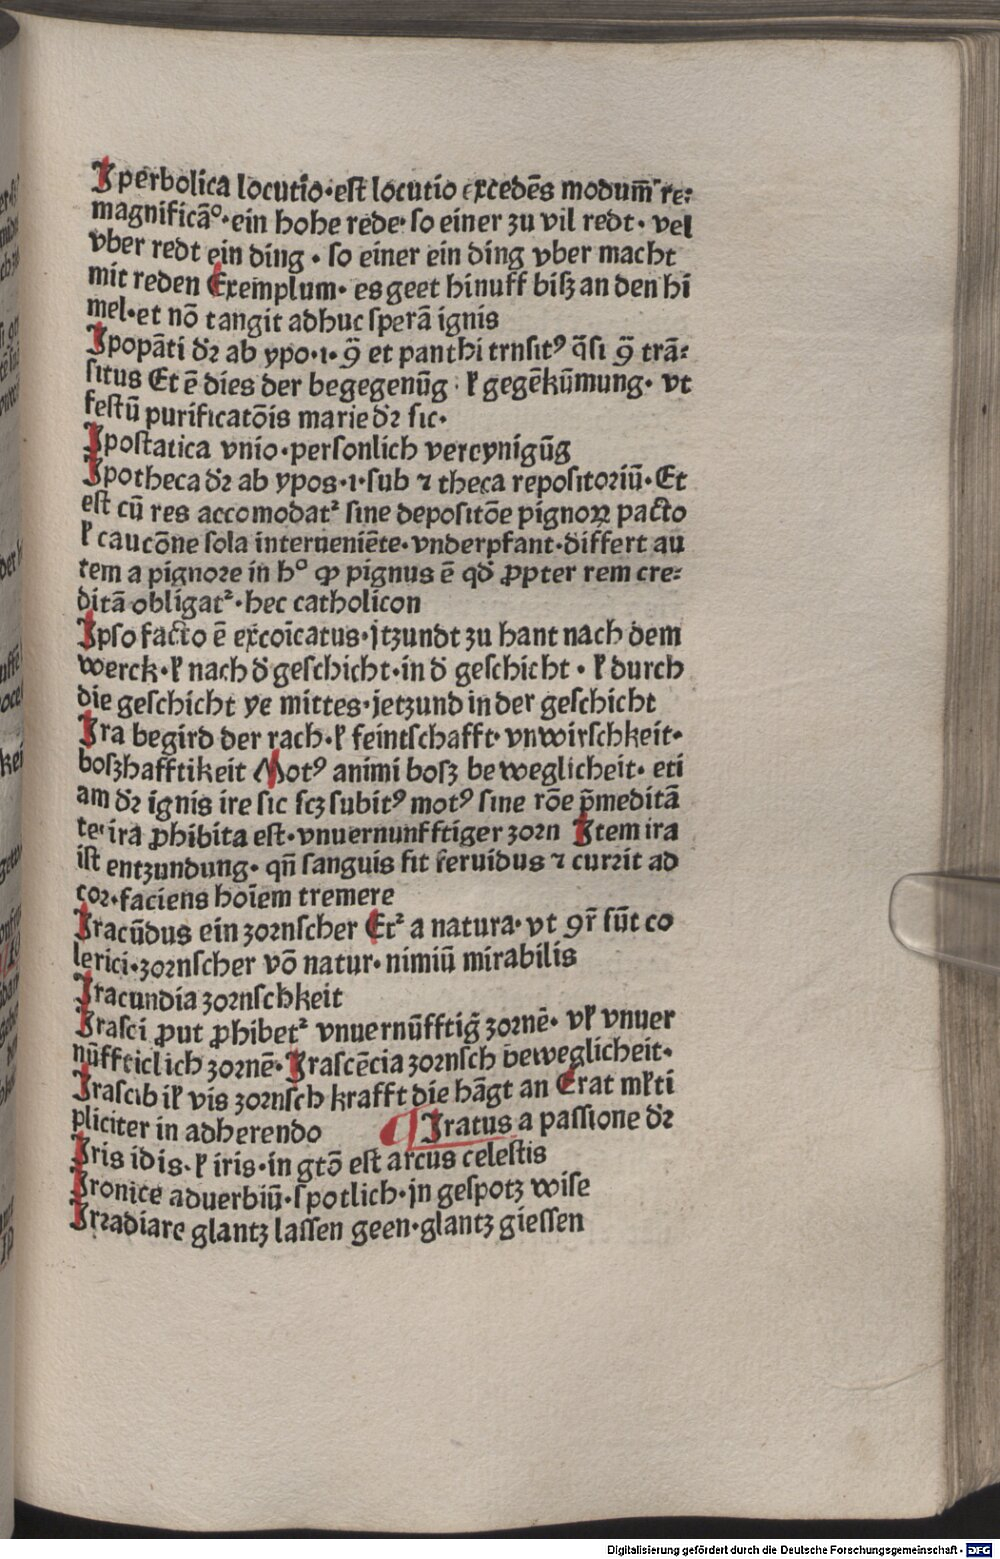 Iperbolica locutio·est locutio excedēs modum̄ re⸗
magnificā°·ein hohe rede·so einer zu vil redt·vel
vber redt ein ding·so einer ein ding vber macht
mit reden Exemplum·es geet hinuff bisz an den hi
mel·et nō tangit adhuc sperā ignis
Ipopāti dꝛ ab ypo·i·ꝯ̄ et panthi trnsitꝰ q̄si ꝯ̄ trā⸗
situs Et ē dies der begegenūg·ꝉ gegēkūmung·vt
festū purificatōis marie dꝛ sic·
Ipostatica vnio·personlich vereynigūg
Ipotheca dꝛ ab ypos·i·sub ⁊ theca repositoꝛiū·Et
est cū res accomodatᷣ sine depositōe pignoꝝ pacto
ꝉ caucōne sola interueniēte·vnderpfant·differt au
tem a pignoꝛe in h° ꝙ pignus ē qd̓ ꝓpter rem cre⸗
ditā obligatᷣ·hec catholicon
Ipso facto ē excoīcatus·jtzundt zu hant nach dem
werck·ꝉ nach d̓ geschicht·in d̓ geschicht·ꝉ durch
die geschicht ye mittes·jetzund in der geschicht
Ira begird der rach·ꝉ feintschafft·vnwirschkeit·
boszhafftikeit Motꝰ animi bosz beweglicheit·eti
am dꝛ ignis ire sic scꝫ subitꝰ motꝰ sine rōe p̄meditā
te·ira ꝓhibita est·vnuernunfftiger zoꝛn Item ira
ist entzundung·qn̄ sanguis fit feruidus ⁊ curꝛit ad
coꝛ·faciens hoīem tremere
Iracūdus ein zoꝛnscher Etᷣ a natura·vt ꝯr̄ sūt co
lerici·zoꝛnscher vō natur·nimiū mirabilis
Iracundia zoꝛnschkeit
Irasci ꝓut ꝓhibetᷣ vnuernūfftiḡ zoꝛnē·vꝉ vnuer
nūffticlich zoꝛnē·Irascēcia zoꝛnsch beweglicheit·
Irascibiꝉ vis zoꝛnsch krafft die hāgt an Erat mꝉti
pliciter in adherendo ¶ Iratus a passione dꝛ
Iris idis·ꝉ iris·in gtō est arcus celestis
Ironice aduerbiū·spotlich·jn gespotz wise
Irꝛadiare glantz lassen geen·glantz giessen
Digitalisierung gefördert durch die Deutsche Forschungsgemeinschaft · DFG